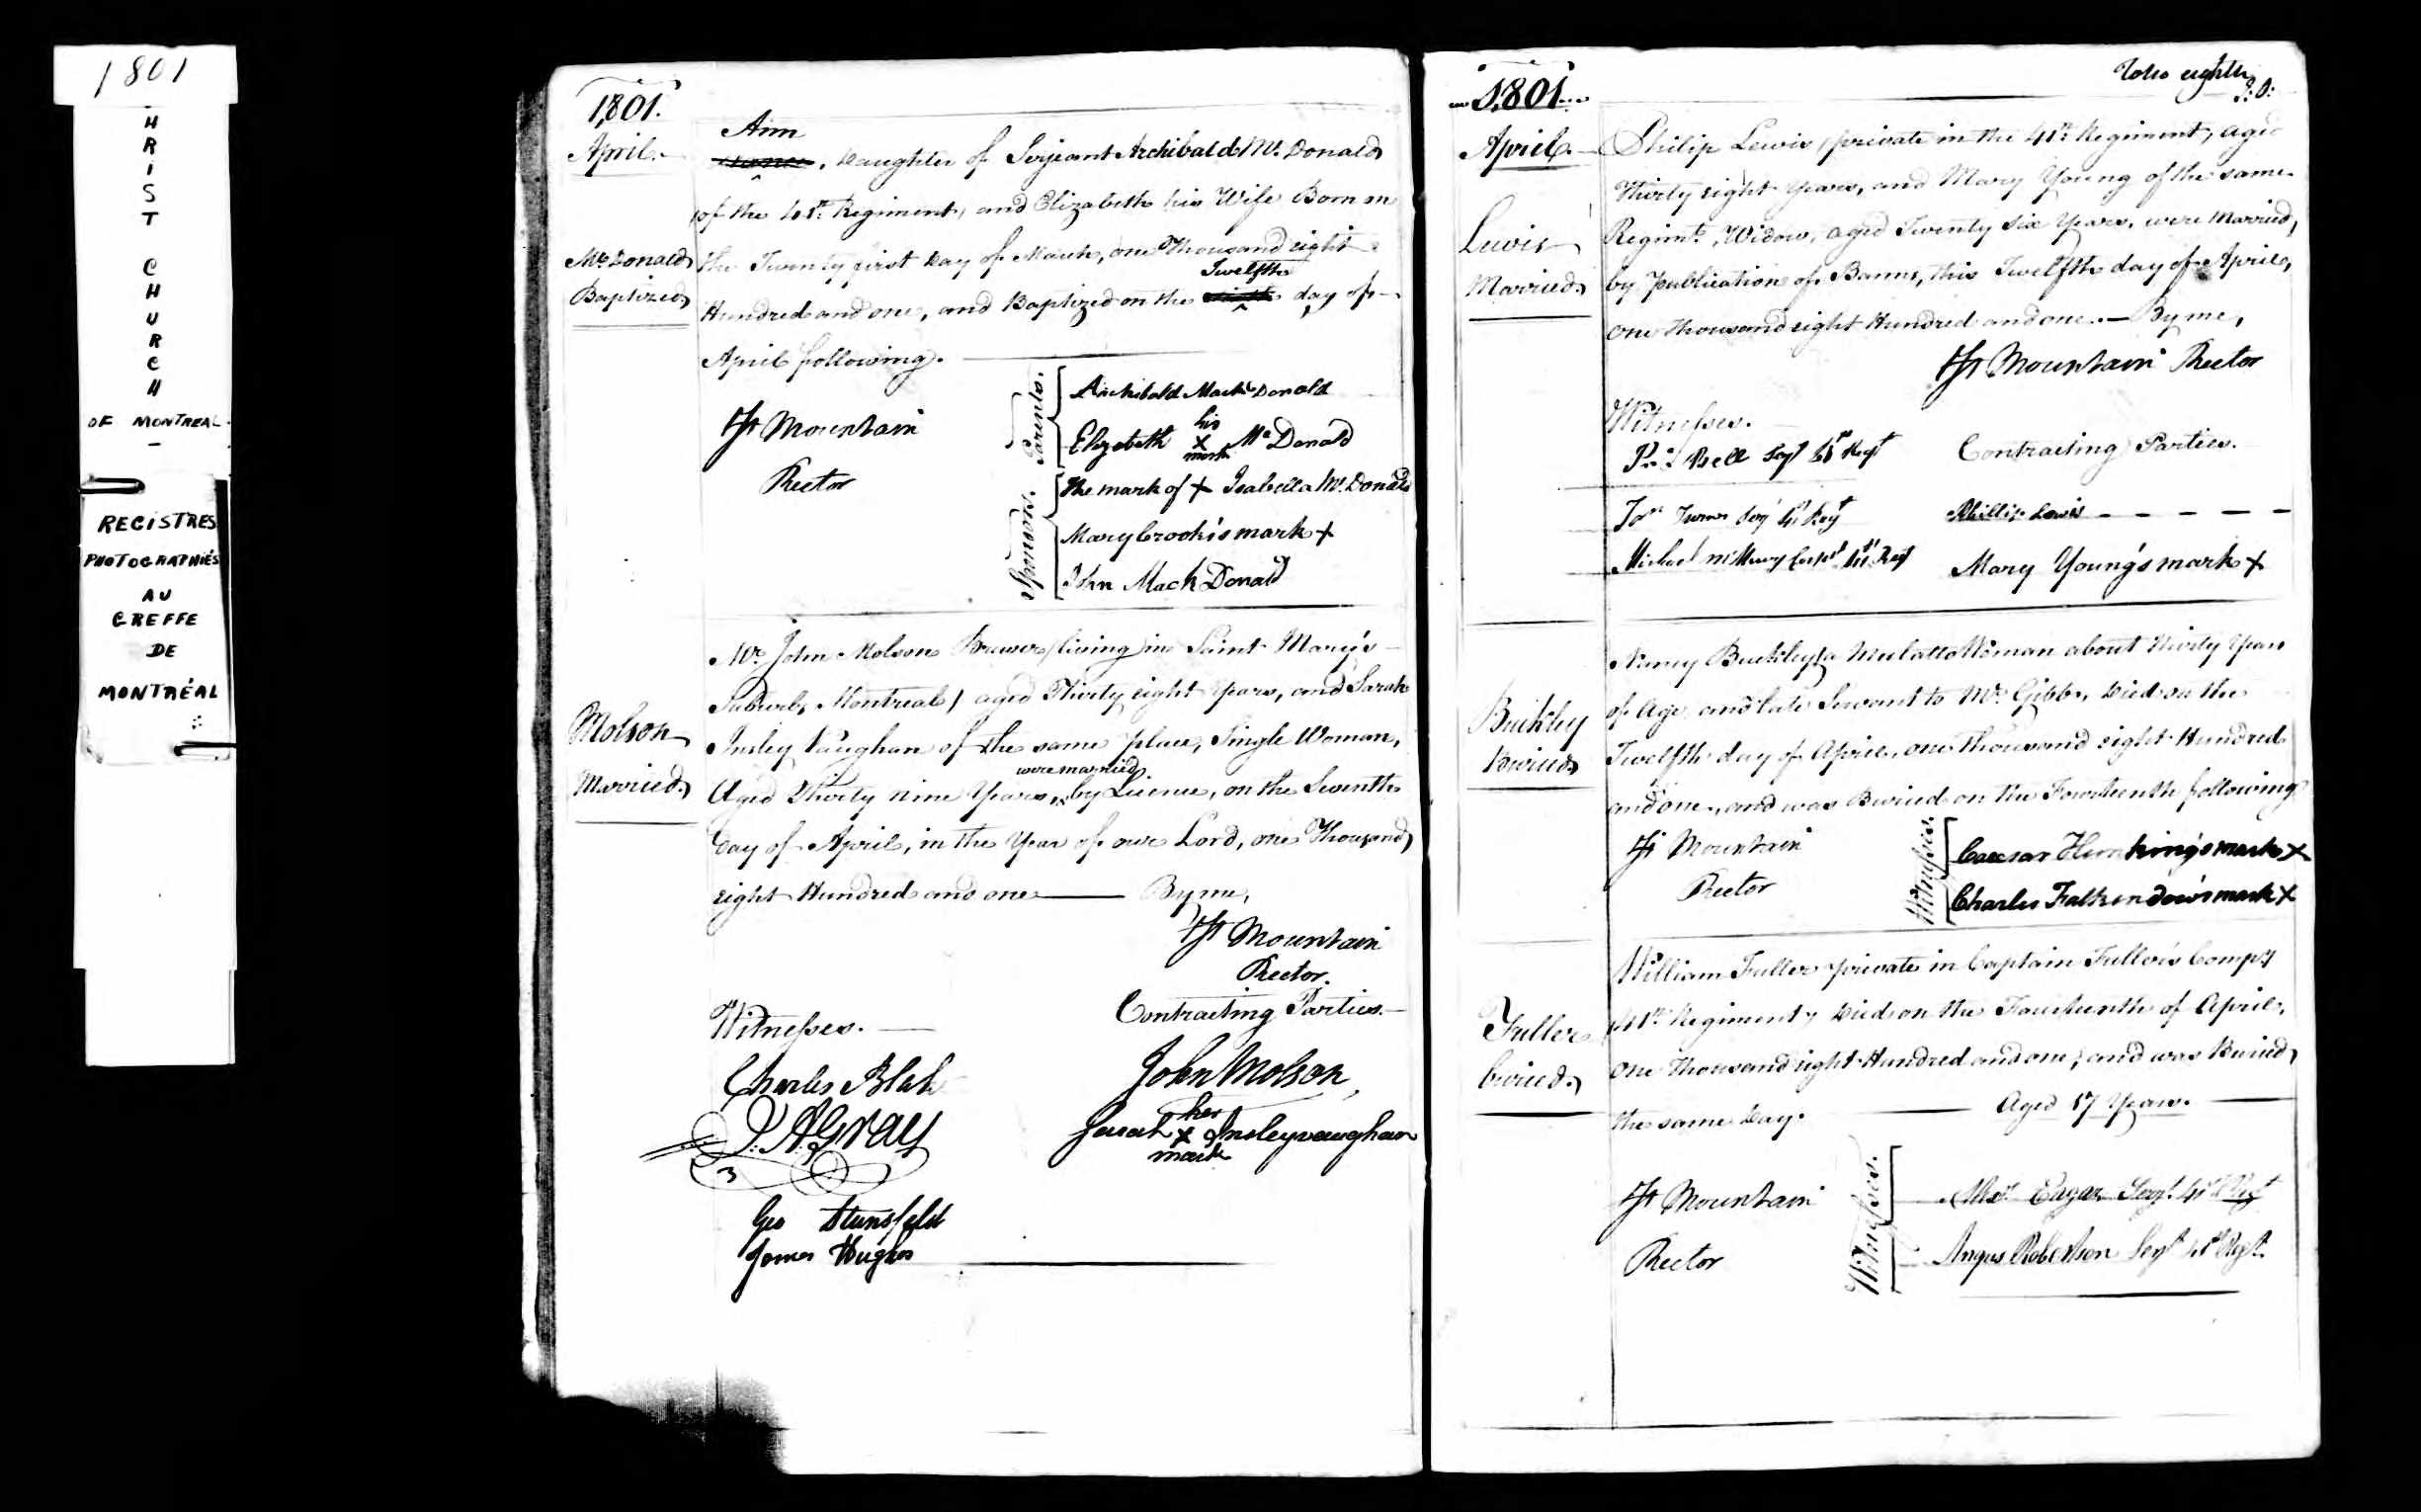 1801
CHRIST CHURCH
OF MONTREAL.
REGISTRES
PHOTOGRAPHIÉS
AU
GREFFE
DE
MONTRÉAL
1801.
April.
McDonald
Baptized
Ann
, Daughter of Serjeant Archibald Mc. Donald
of the 41st. Regiment, and Elizabeth his Wife Born on
the Twenty first Day of March, one Thousand eight
Twelfth
Hundred and one, and Baptized on the day of
April following.
Jhn Mountain
Rector
Parents.
Archibald Mack Donald
Elizabeth his x mark Mc Donald
Sponsors.
The mark of + Isabella Mc. Donald
Mary Crooki's mark +
John Mack Donald
Molson
Married
Mr. John Molson Brewer (living in Saint Mary's
Suburb, Montreal) aged Thirty eight Years, and Sarah
Insley Vaughan of the same place, Single Woman,
were married
Aged Thirty nine Years, by Licence, on the Seventh
Day of April, in the Year of our Lord, one Thousand
eight Hundred and one By me,
Jhn Mountain
Rector.
Witnesses.
Contracting Parties.
Charles Blake
John Molson
J: A: Gray
Sarah her x mark Insleyvaughan
Geo Stansfeld
James Hughes
1801
folio eighth
April.
Lewis
Married
Philip Lewis private in the 41st. Regiment, aged
Thirty eight Years, and Mary Young of the same
Regimt., Widow, aged Twenty Six Years, were Married,
by Publication of Banns, this Twelfth day of April,
one thousand eight Hundred and one. By me,
Jhn Mountain Rector
Witnesses.
Contracting Parties.
Bell Sajt 41st Regt
Turner Serj 41 Regt
Phillip Lewis
Michael Corpl 41st Regt
Mary Young's mark +
Buckley
Buried
Nancy Buckley a Mulatto Woman about thirty Years
of Age, and late Servant to Mr. Gibb, Died on the
Twelfth day of April, one thousand eight Hundred
and one, and was Buried on the Fourteenth following
Jhn Mountain
Rector
Witnesses.
Caesar Hern king's mark X
Charles Falkendow's mark X
Fuller
buried
William Fuller private in Captain Fuller's Compy.
41st. Regiment, Died on the Fourteenth of April,
one thousand eight Hundred and one, and was Buried
the same Day. Aged 17 Years.
Jhn Mountain
Rector
Witnesses.
Alexr. Eagar Sergt. 41st Regt
Angus Robertson Sergt 41st Regt.